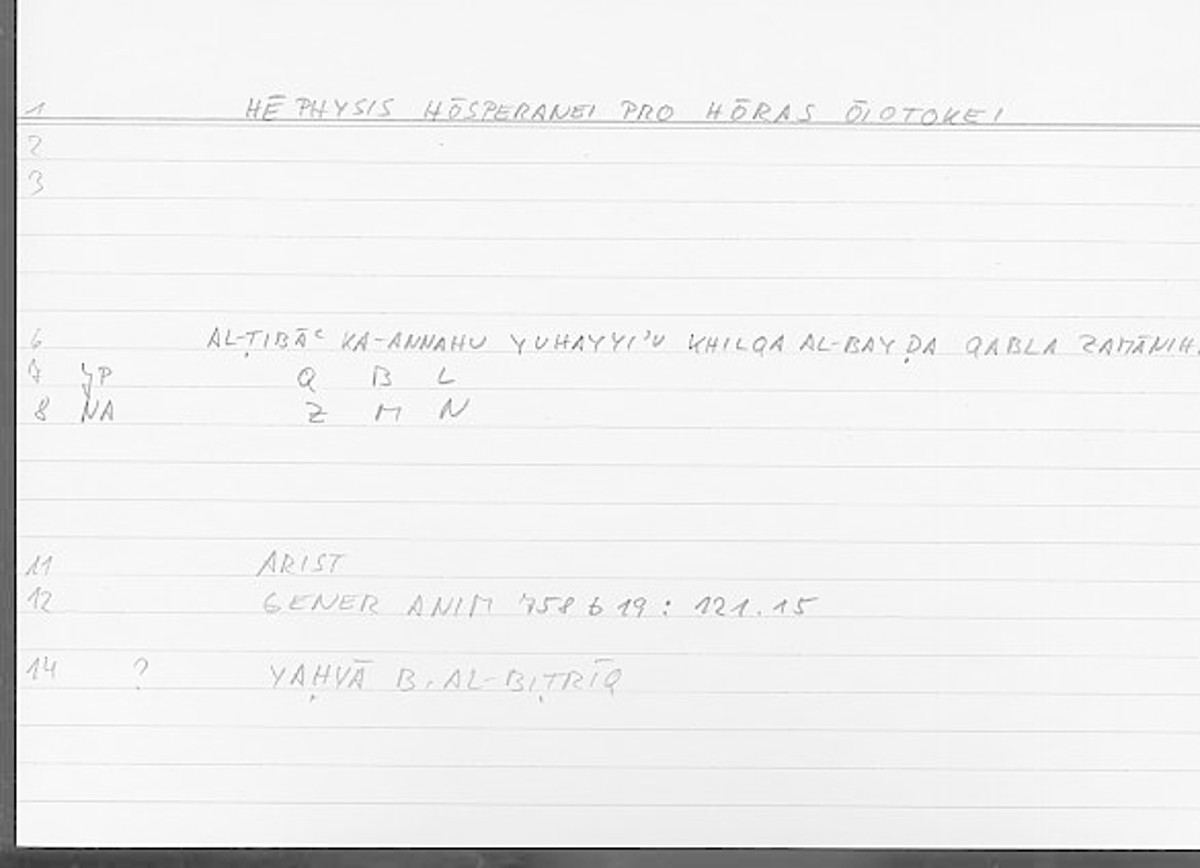 1 HĒ PHYSIS HŌSPERANEI PRO HŌRAS ŌIOTOKEI
2
3
6 AL-ṬIBĀʿ KA-ANNAHU YUHAYYIʾU KHILQA AL-BAYḌA QABLA ZAMĀNIH
7 YP Q B L
8 NA Z M N
11 ARIST
12 GENER ANIM 758 b 19 : 121.15
14 ? YAḤYĀ B. AL-BIṬRĪQ